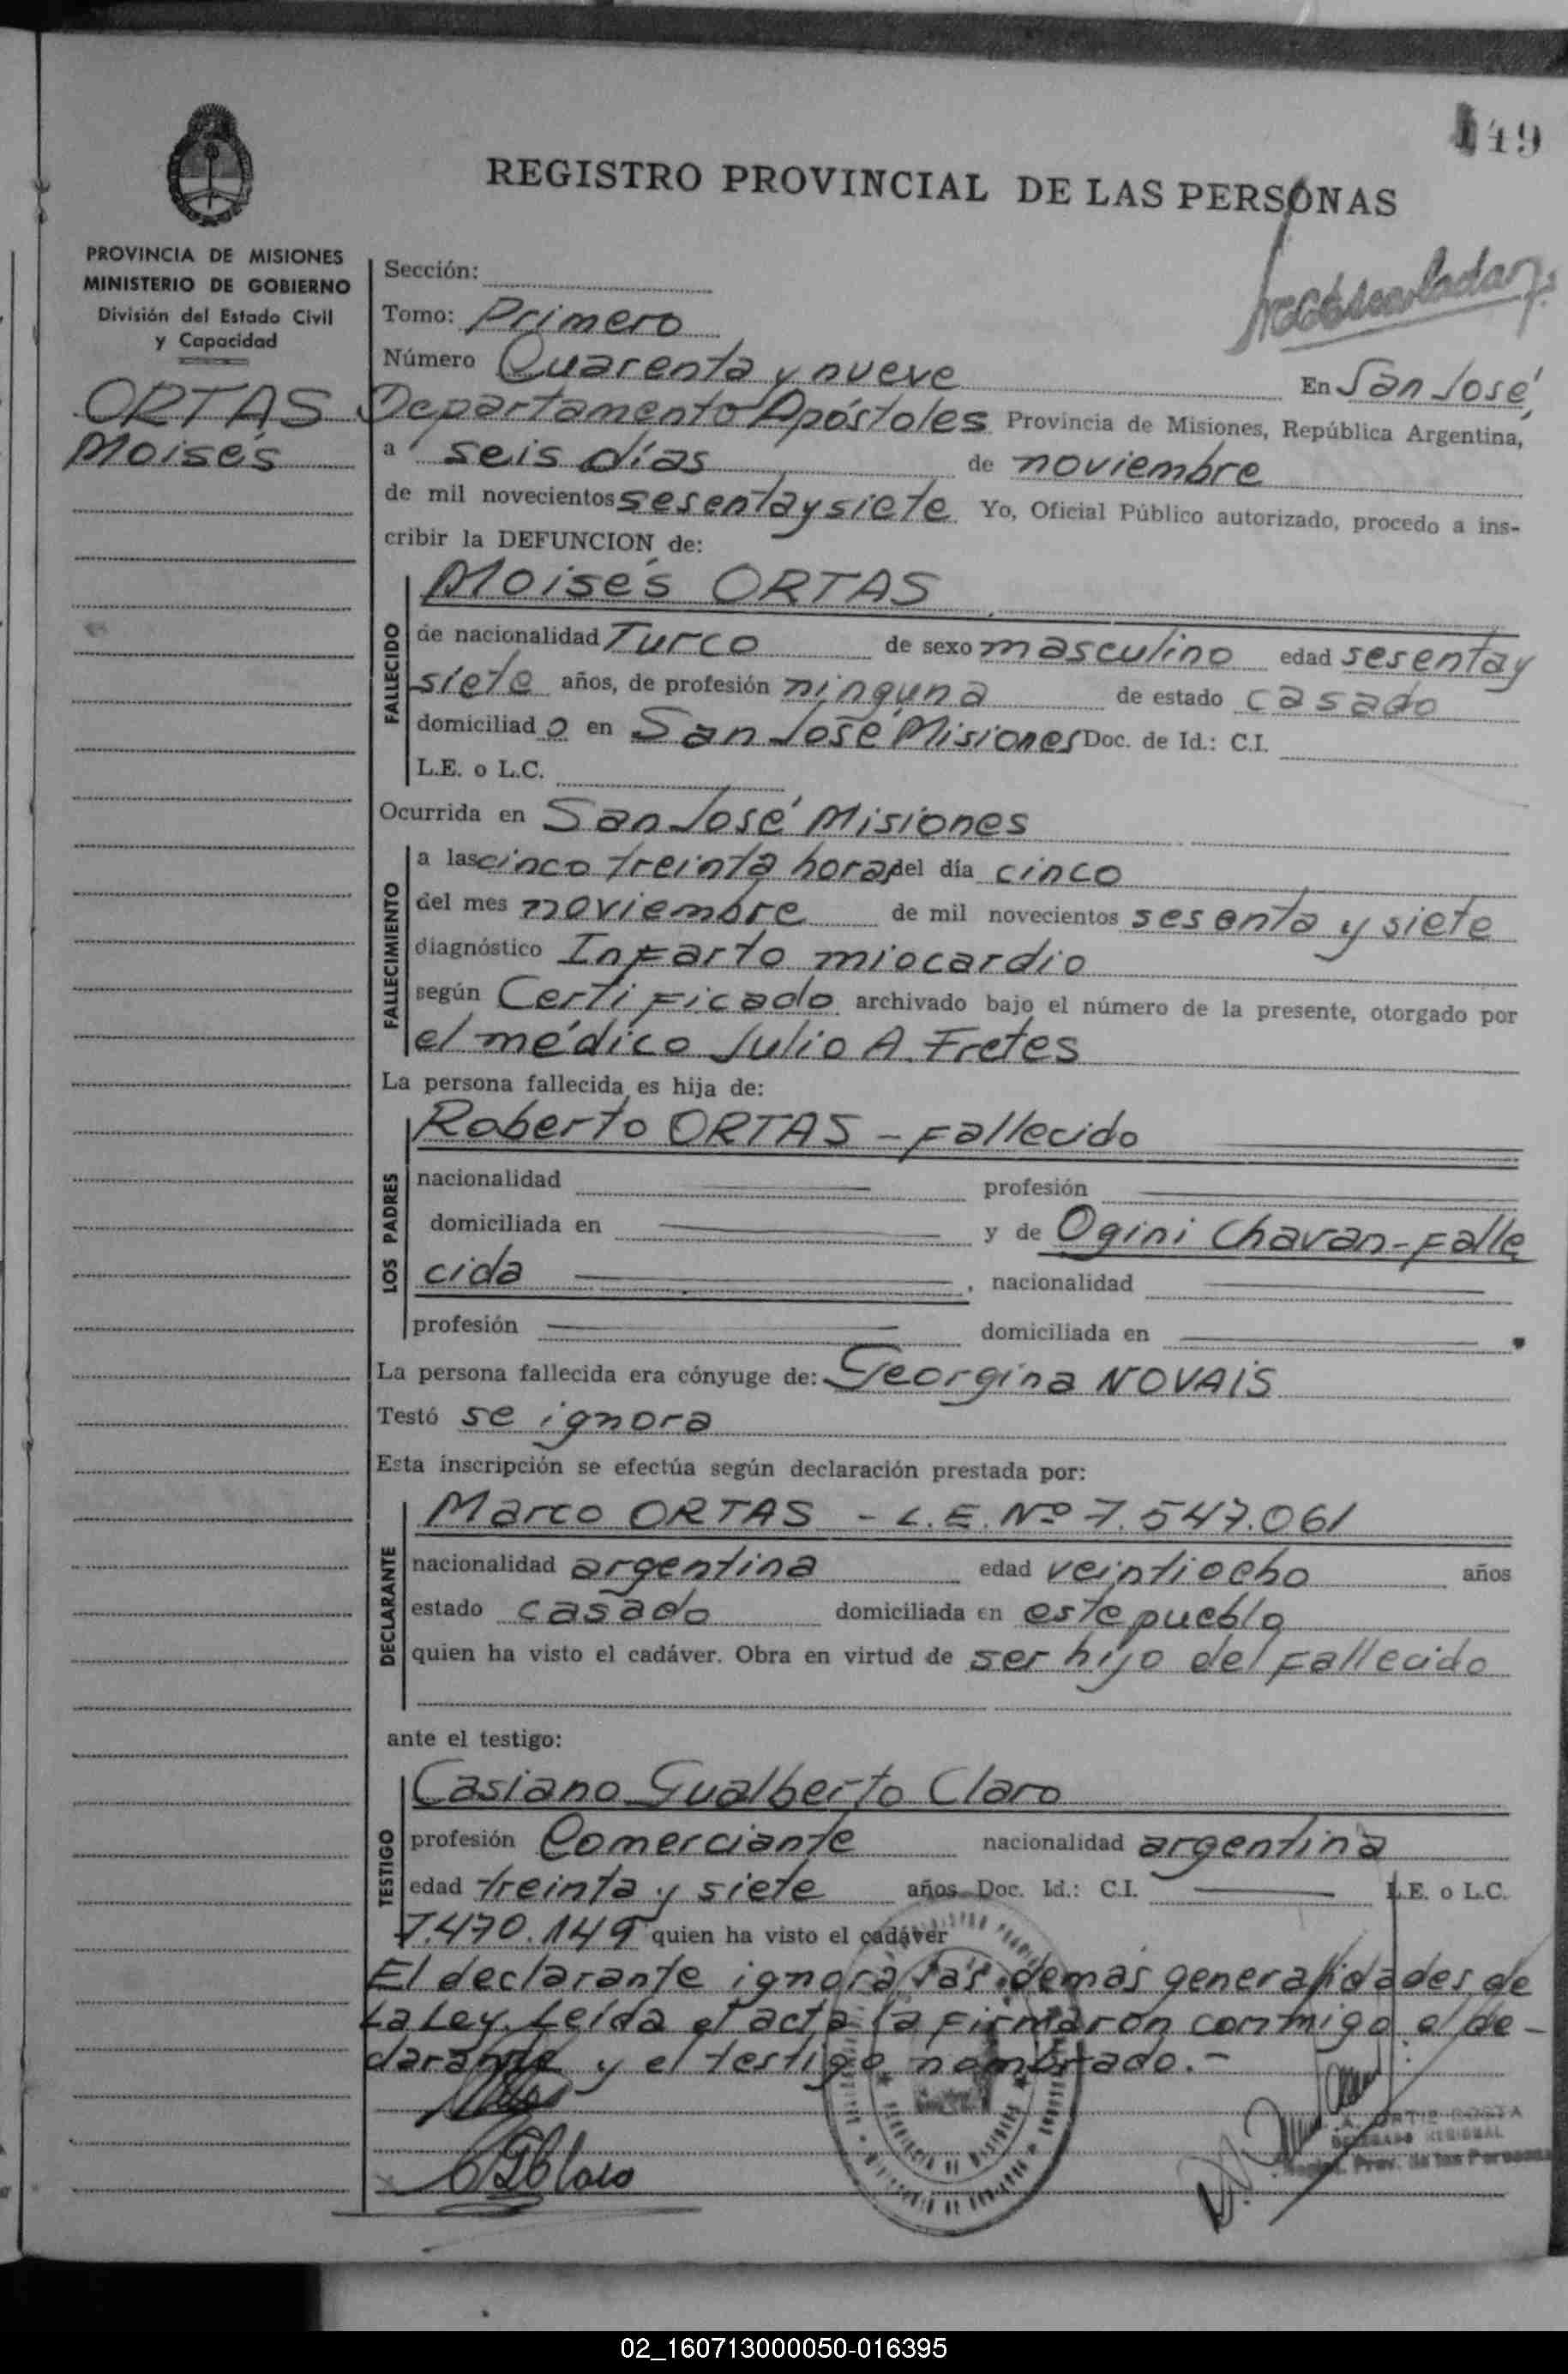 149
REGISTRO PROVINCIAL DE LAS PERSONAS
PROVINCIA DE MISIONES
MINISTERIO DE GOBIERNO
División del Estado Civil
y Capacidad
ORTAS
Moisés
Sección:
Tomo: Primero
Número Cuarenta y nueve En San José,
Departamento Apóstoles Provincia de Misiones, República Argentina,
a seis días de noviembre
de mil novecientos sesenta y siete Yo, Oficial Público autorizado, procedo a ins-
cribir la DEFUNCION de:
FALLECIDO
Moisés ORTAS
de nacionalidad Turco de sexo masculino edad sesenta y
siete años, de profesión ninguna de estado casado
domiciliad o en San José Misiones Doc. de Id.: C.I.
L.E. o L.C.
Ocurrida en San José Misiones
FALLECIMIENTO
a las cinco treinta horas del día cinco
del mes noviembre de mil novecientos sesenta y siete
diagnóstico Infarto miocardio
según Certificado archivado bajo el número de la presente, otorgado por
el médico Julio A. Fretes
La persona fallecida es hija de:
LOS PADRES
Roberto ORTAS - Fallecido
nacionalidad profesión
domiciliada en y de Ogini Chavan - Falle
cida , nacionalidad
profesión domiciliada en .
La persona fallecida era cónyuge de: Georgina NOVAIS
Testó se ignora
Esta inscripción se efectúa según declaración prestada por:
DECLARANTE
Marco ORTAS - L.E. Nº 7.547.061
nacionalidad argentina edad veintiocho años
estado casado domiciliada en este pueblo
quien ha visto el cadáver. Obra en virtud de ser hijo del fallecido
ante el testigo:
TESTIGO
Casiano Gualberto Claro
profesión Comerciante nacionalidad argentina
edad treinta y siete años Doc. Id.: C.I. L.E. o L.C.
7.470.149 quien ha visto el cadáver
El declarante ignora las demás generalidades de
la Ley. Leída el acta la firmaron conmigo el de-
clarante y el testigo nombrado.-
A. ORTIZ COSTA
DELEGADO REGIONAL
Regist. Prov. de las Personas
02_160713000050-016395